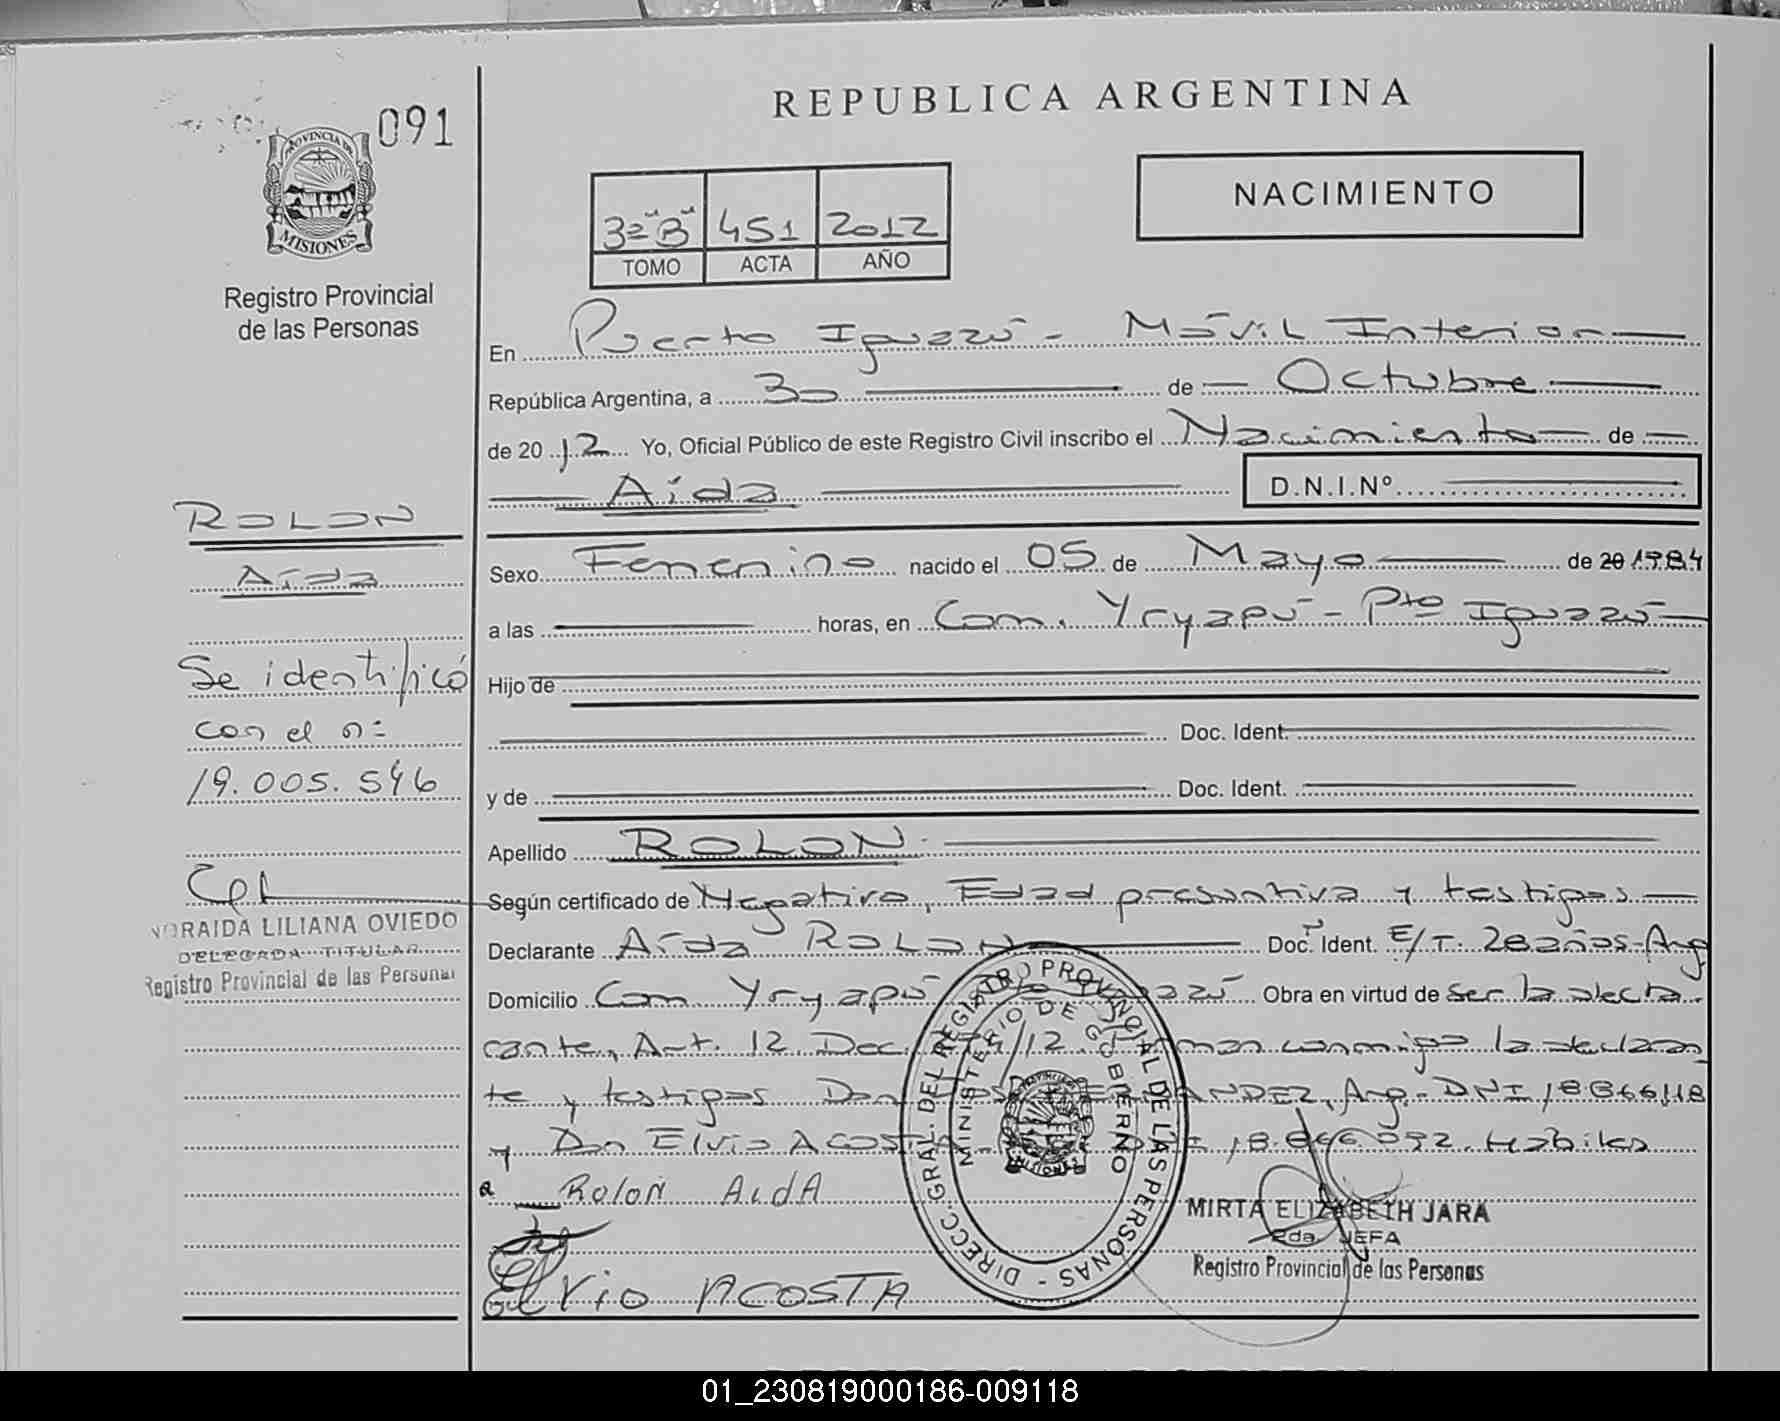 REPUBLICA ARGENTINA
091
PROVINCIA DE
MISIONES
Registro Provincial
de las Personas
3º "B" 451 2012
TOMO ACTA AÑO
NACIMIENTO
En Puerto Iguazú - Móvil Interior
República Argentina, a 30 de Octubre
de 2012 Yo, Oficial Público de este Registro Civil inscribo el Nacimiento de
Aída D.N.I.Nº
ROLON
Aída
Se identificó
con el nº
19.005.546
Sexo Femenino nacido el 05 de Mayo de 20 1984
a las horas, en Com. Yryapú - Pto Iguazú
Hijo de
Doc. Ident.
y de Doc. Ident.
Apellido ROLON
Según certificado de Negativo, Edad presuntiva y testigos
Declarante Aída ROLON Doc. Ident. E/T. 28 años - Arg
Domicilio Com Yryapú Pto Iguazú Obra en virtud de ser la declarante, Art. 12 Dec. /12. Firman conmigo la declarante
y testigos Don DNI 18.866.118
y Don Elvio ACOSTA 18.
a Rolon AidA
Elvio ACOSTA
NORAIDA LILIANA OVIEDO
DELEGADA TITULAR
Registro Provincial de las Personas
DIRECC. GRAL. DEL REGISTRO PROVINCIAL DE LAS PERSONAS -
MINISTERIO DE GOBIERNO
MISIONES
MIRTA ELIZABETH JARA
2da JEFA
Registro Provincial de las Personas
01_230819000186-009118